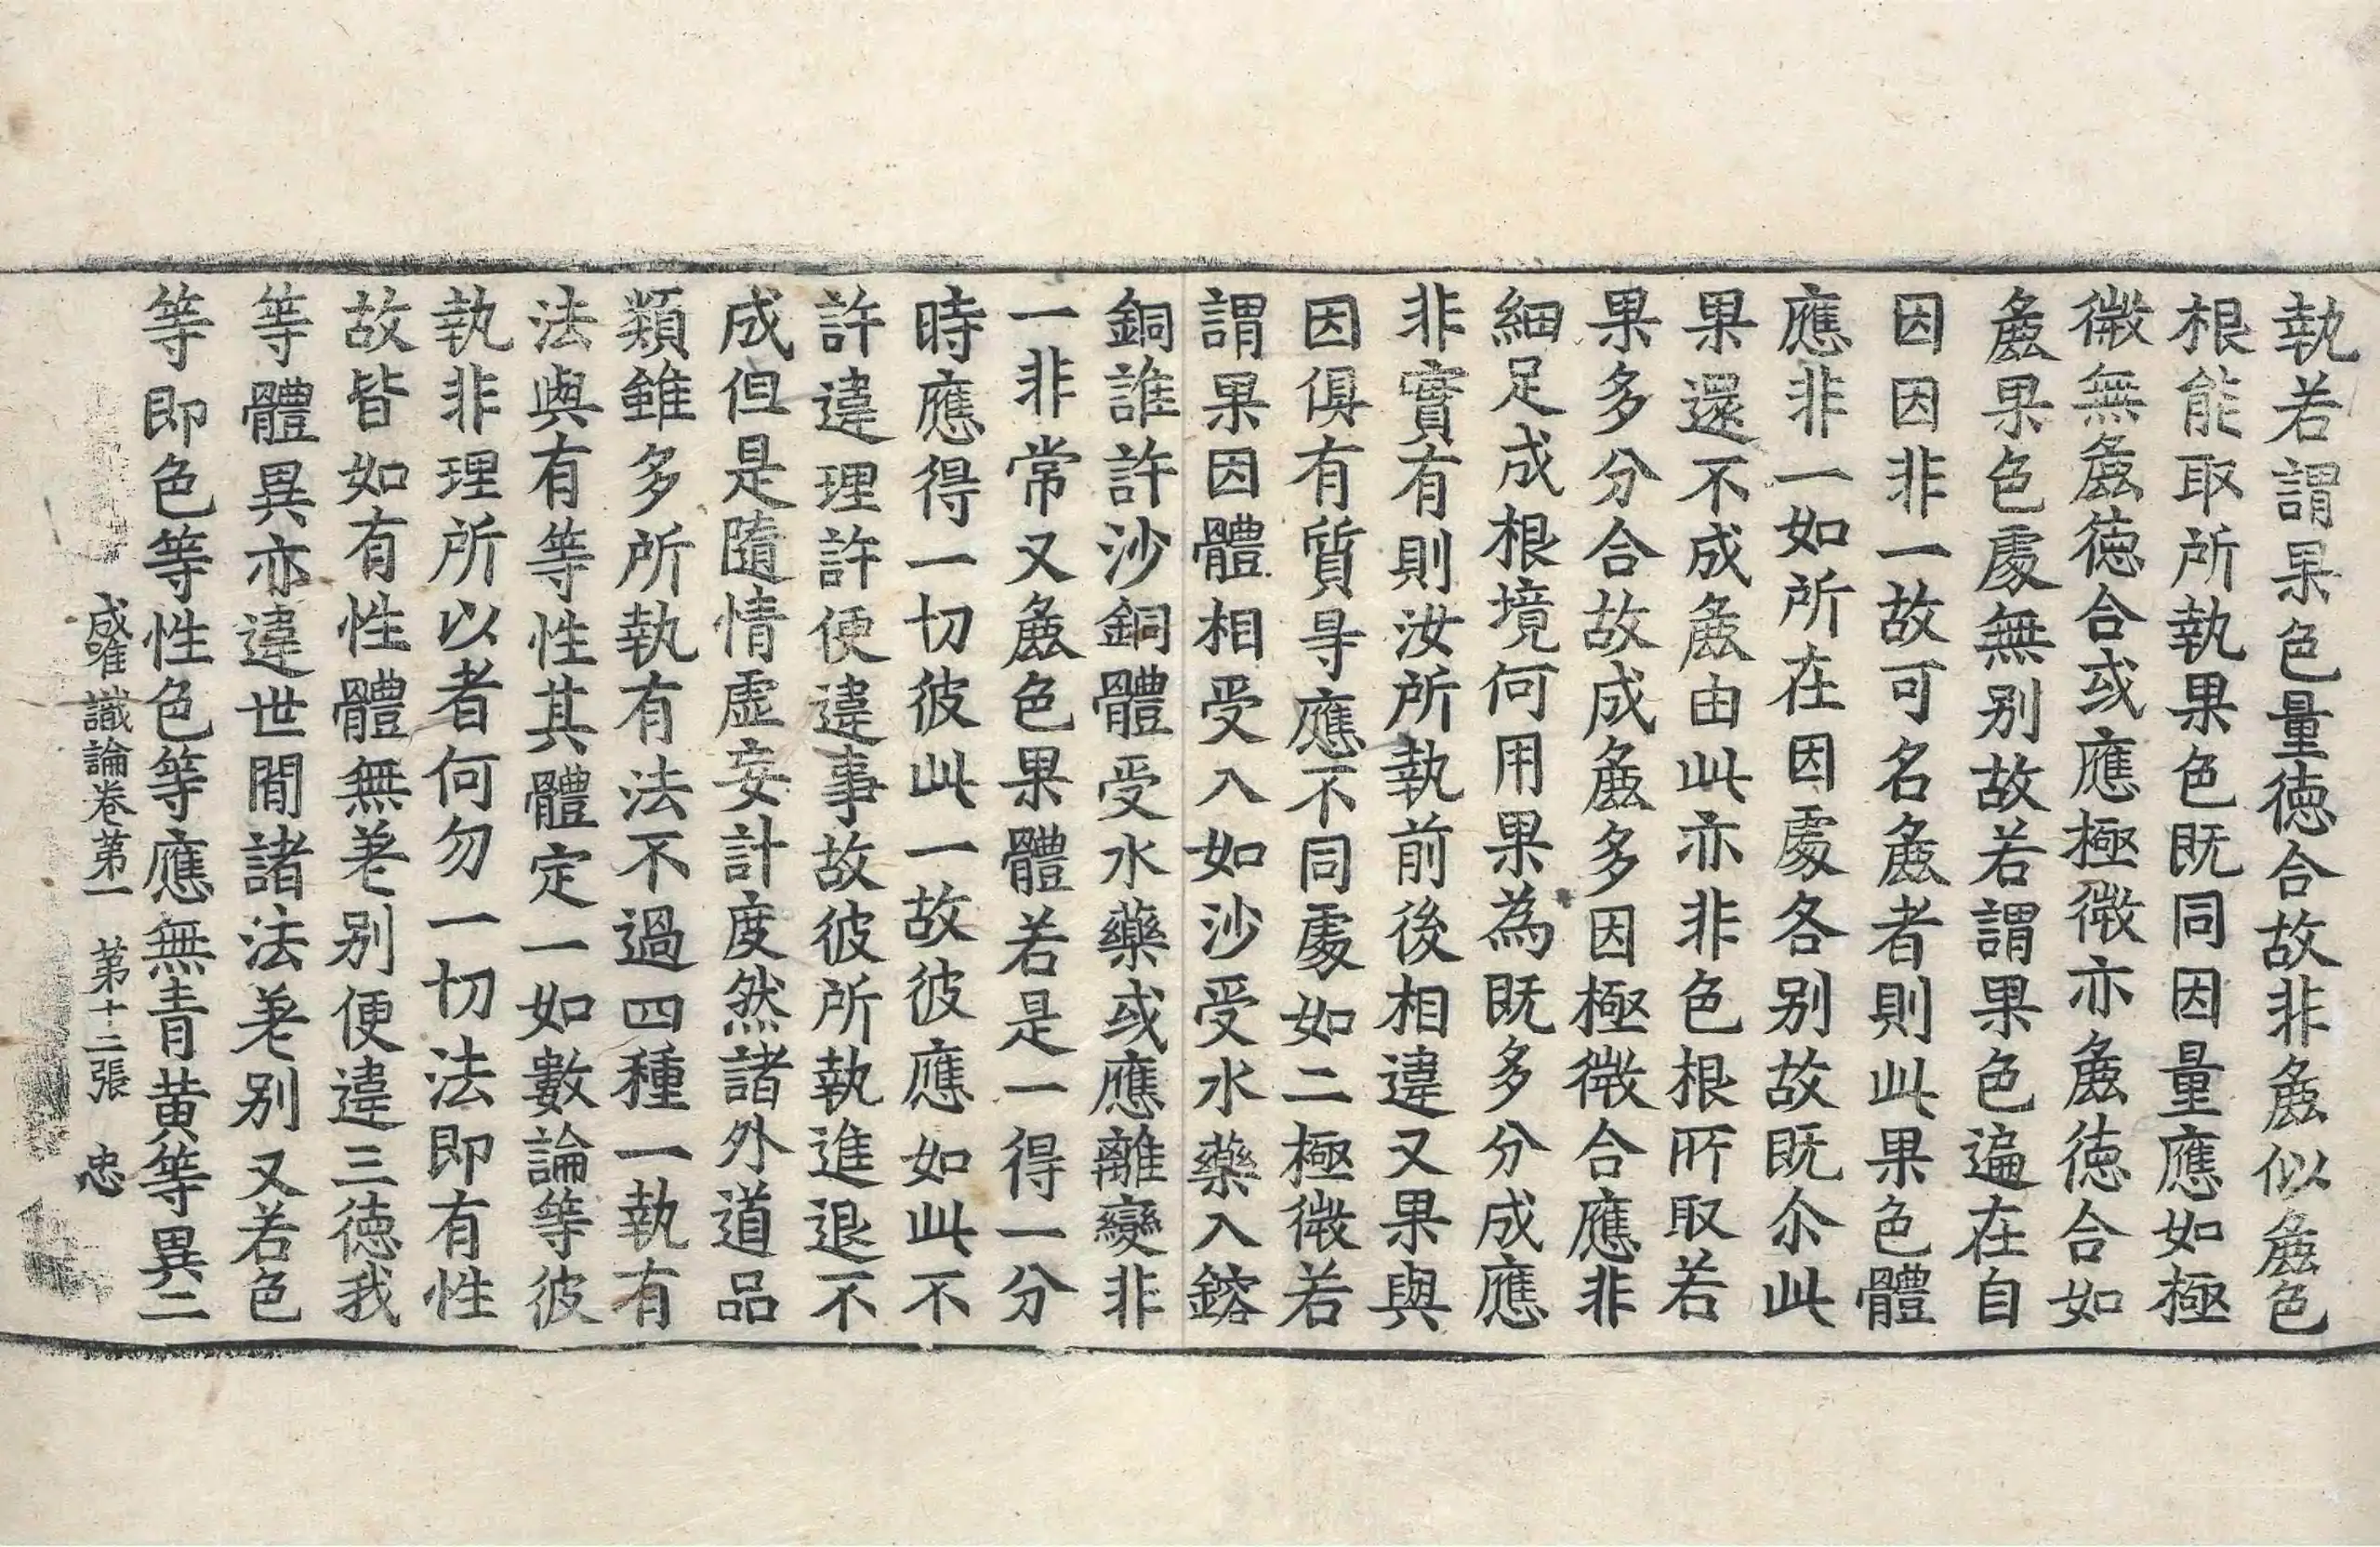 執若謂果色量徳合故非麁似麁色
根能取所執果色既同因量應如極
微無麁徳合或應極微亦麁徳合如
麁果色處無别故若謂果色遍在自
因因非一故可名麁者則此果色體
應非一如所在因處各别故既尒此
果還不成麁由此亦非色根所取若
果多分合故成麁多因極微合應非
細足成根境何用果為既多分成應
非實有則汝所執前後相違又果與
因俱有質㝵應不同處如二極微若
謂果因體相受入如沙受水藥入鎔
銅誰許沙銅體受水藥或應離變非
一非常又麁色果體若是一得一分
時應得一切彼此一故彼應如此不
許違理許便違事故彼所執進退不
成但是隨情虛妄計度然諸外道品
類雖多所執有法不過四種一執有
法與有等性其體定一如數論等彼
執非理所以者何勿一切法即有性
故皆如有性體無差别便違三徳我
等體異亦違世間諸法差别又若色
等即色等性色等應無青黄等異二
成唯識論卷苐一 苐十二張 忠